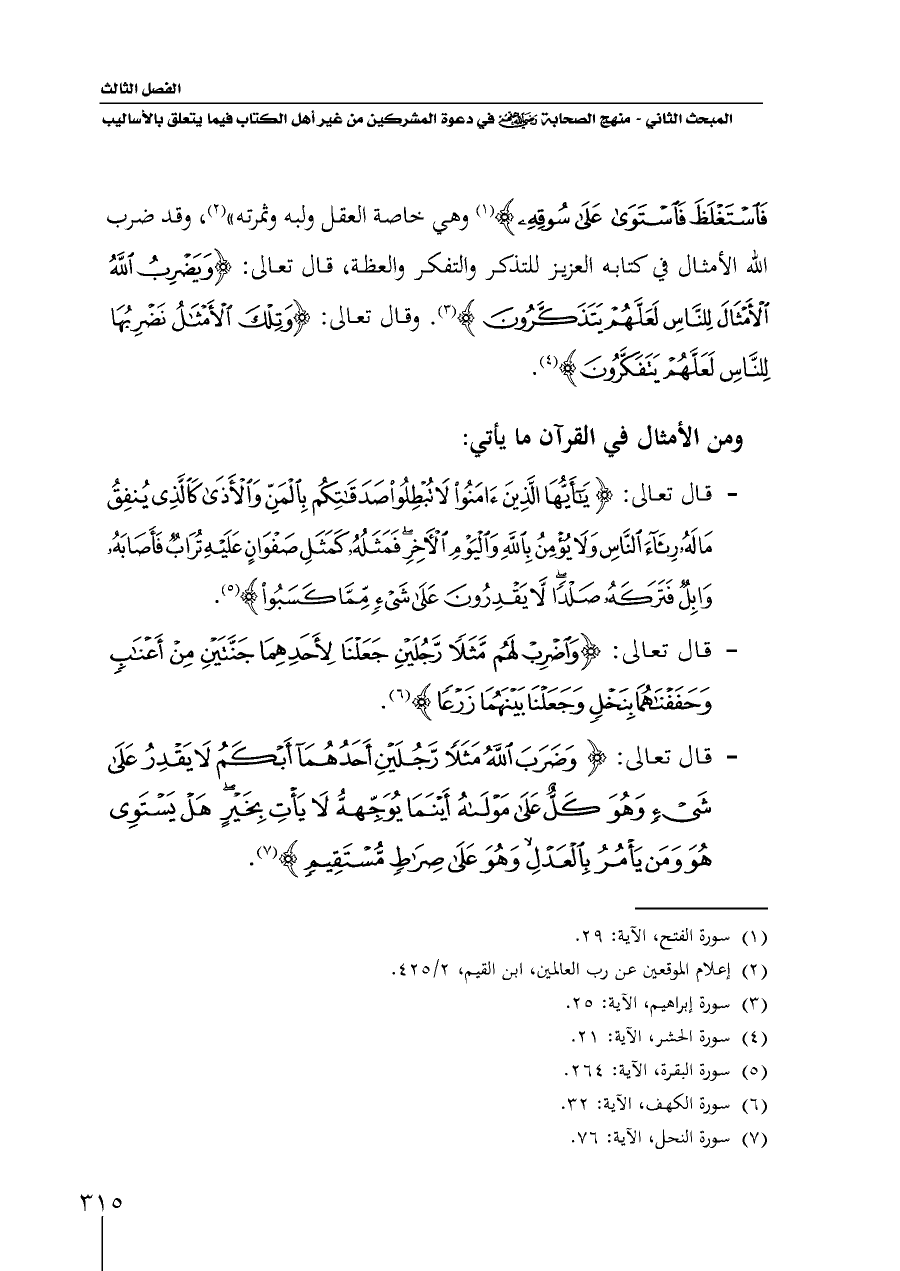 الفصل الثالث
المبحث الثاني - منهج الصحابة رضي الله عنهم في دعوة المشركين من غير أهل الكتاب فيما يتعلق بالأساليب
فَٱسۡتَغۡلَظَ فَٱسۡتَوَىٰ عَلَىٰ سُوقِهِۦ﴾(١) وهي خاصة العقل ولبه وثمرته»(٢)، وقد ضرب
الله الأمثال في كتابه العزيز للتذكر والتفكر والعظة، قال تعالى: ﴿وَيَضۡرِبُ ٱللَّهُ
ٱلۡأَمۡثَالَ لِلنَّاسِ لَعَلَّهُمۡ يَتَذَكَّرُونَ﴾(٣). وقال تعالى: ﴿وَتِلۡكَ ٱلۡأَمۡثَٰلُ نَضۡرِبُهَا
لِلنَّاسِ لَعَلَّهُمۡ يَتَفَكَّرُونَ﴾(٤).
ومن الأمثال في القرآن ما يأتي:
- قال تعالى: ﴿يَٰٓأَيُّهَا ٱلَّذِينَ ءَامَنُواْ لَا تُبۡطِلُواْ صَدَقَٰتِكُم بِٱلۡمَنِّ وَٱلۡأَذَىٰ كَٱلَّذِي يُنفِقُ
مَالَهُۥ رِئَآءَ ٱلنَّاسِ وَلَا يُؤۡمِنُ بِٱللَّهِ وَٱلۡيَوۡمِ ٱلۡأٓخِرِۖ فَمَثَلُهُۥ كَمَثَلِ صَفۡوَانٍ عَلَيۡهِ تُرَابٞ فَأَصَابَهُۥ
وَابِلٞ فَتَرَكَهُۥ صَلۡدٗاۖ لَّا يَقۡدِرُونَ عَلَىٰ شَيۡءٖ مِّمَّا كَسَبُواْ﴾(٥).
- قال تعالى: ﴿وَٱضۡرِبۡ لَهُم مَّثَلٗا رَّجُلَيۡنِ جَعَلۡنَا لِأَحَدِهِمَا جَنَّتَيۡنِ مِنۡ أَعۡنَٰبٖ
وَحَفَفۡنَٰهُمَا بِنَخۡلٖ وَجَعَلۡنَا بَيۡنَهُمَا زَرۡعٗا﴾(٦).
- قال تعالى: ﴿وَضَرَبَ ٱللَّهُ مَثَلٗا رَّجُلَيۡنِ أَحَدُهُمَآ أَبۡكَمُ لَا يَقۡدِرُ عَلَىٰ
شَيۡءٖ وَهُوَ كَلٌّ عَلَىٰ مَوۡلَىٰهُ أَيۡنَمَا يُوَجِّههُّ لَا يَأۡتِ بِخَيۡرٍ هَلۡ يَسۡتَوِي
هُوَ وَمَن يَأۡمُرُ بِٱلۡعَدۡلِ وَهُوَ عَلَىٰ صِرَٰطٖ مُّسۡتَقِيمٖ﴾(٧).
(١) سورة الفتح، الآية: ٢٩.
(٢) إعلام الموقعين عن رب العالمين، ابن القيم، ٤٢٥/٢.
(٣) سورة إبراهيم، الآية: ٢٥.
(٤) سورة الحشر، الآية: ٢١.
(٥) سورة البقرة، الآية: ٢٦٤.
(٦) سورة الكهف، الآية: ٣٢.
(٧) سورة النحل، الآية: ٧٦.
٣١٥